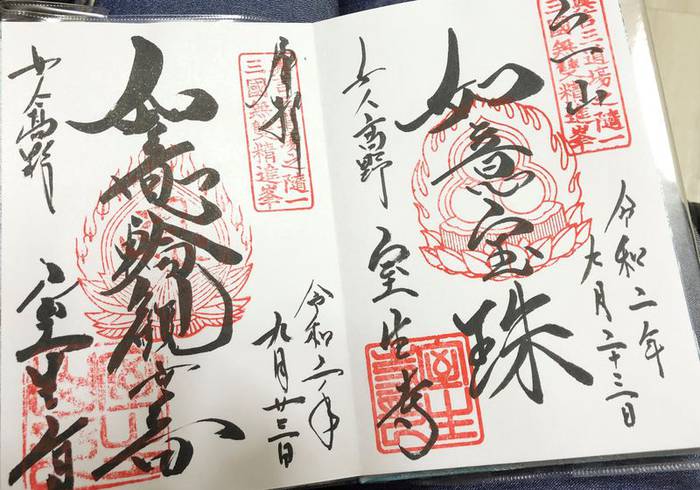 宀一山
興信三道場之随一
三國無雙精進峯
令和二年
九月二十三日
如意宝珠
女人高野
室生寺
奉拝
三國無雙精進峯
令和二年
九月廿三日
如意輪観世音
女人高野
室生寺